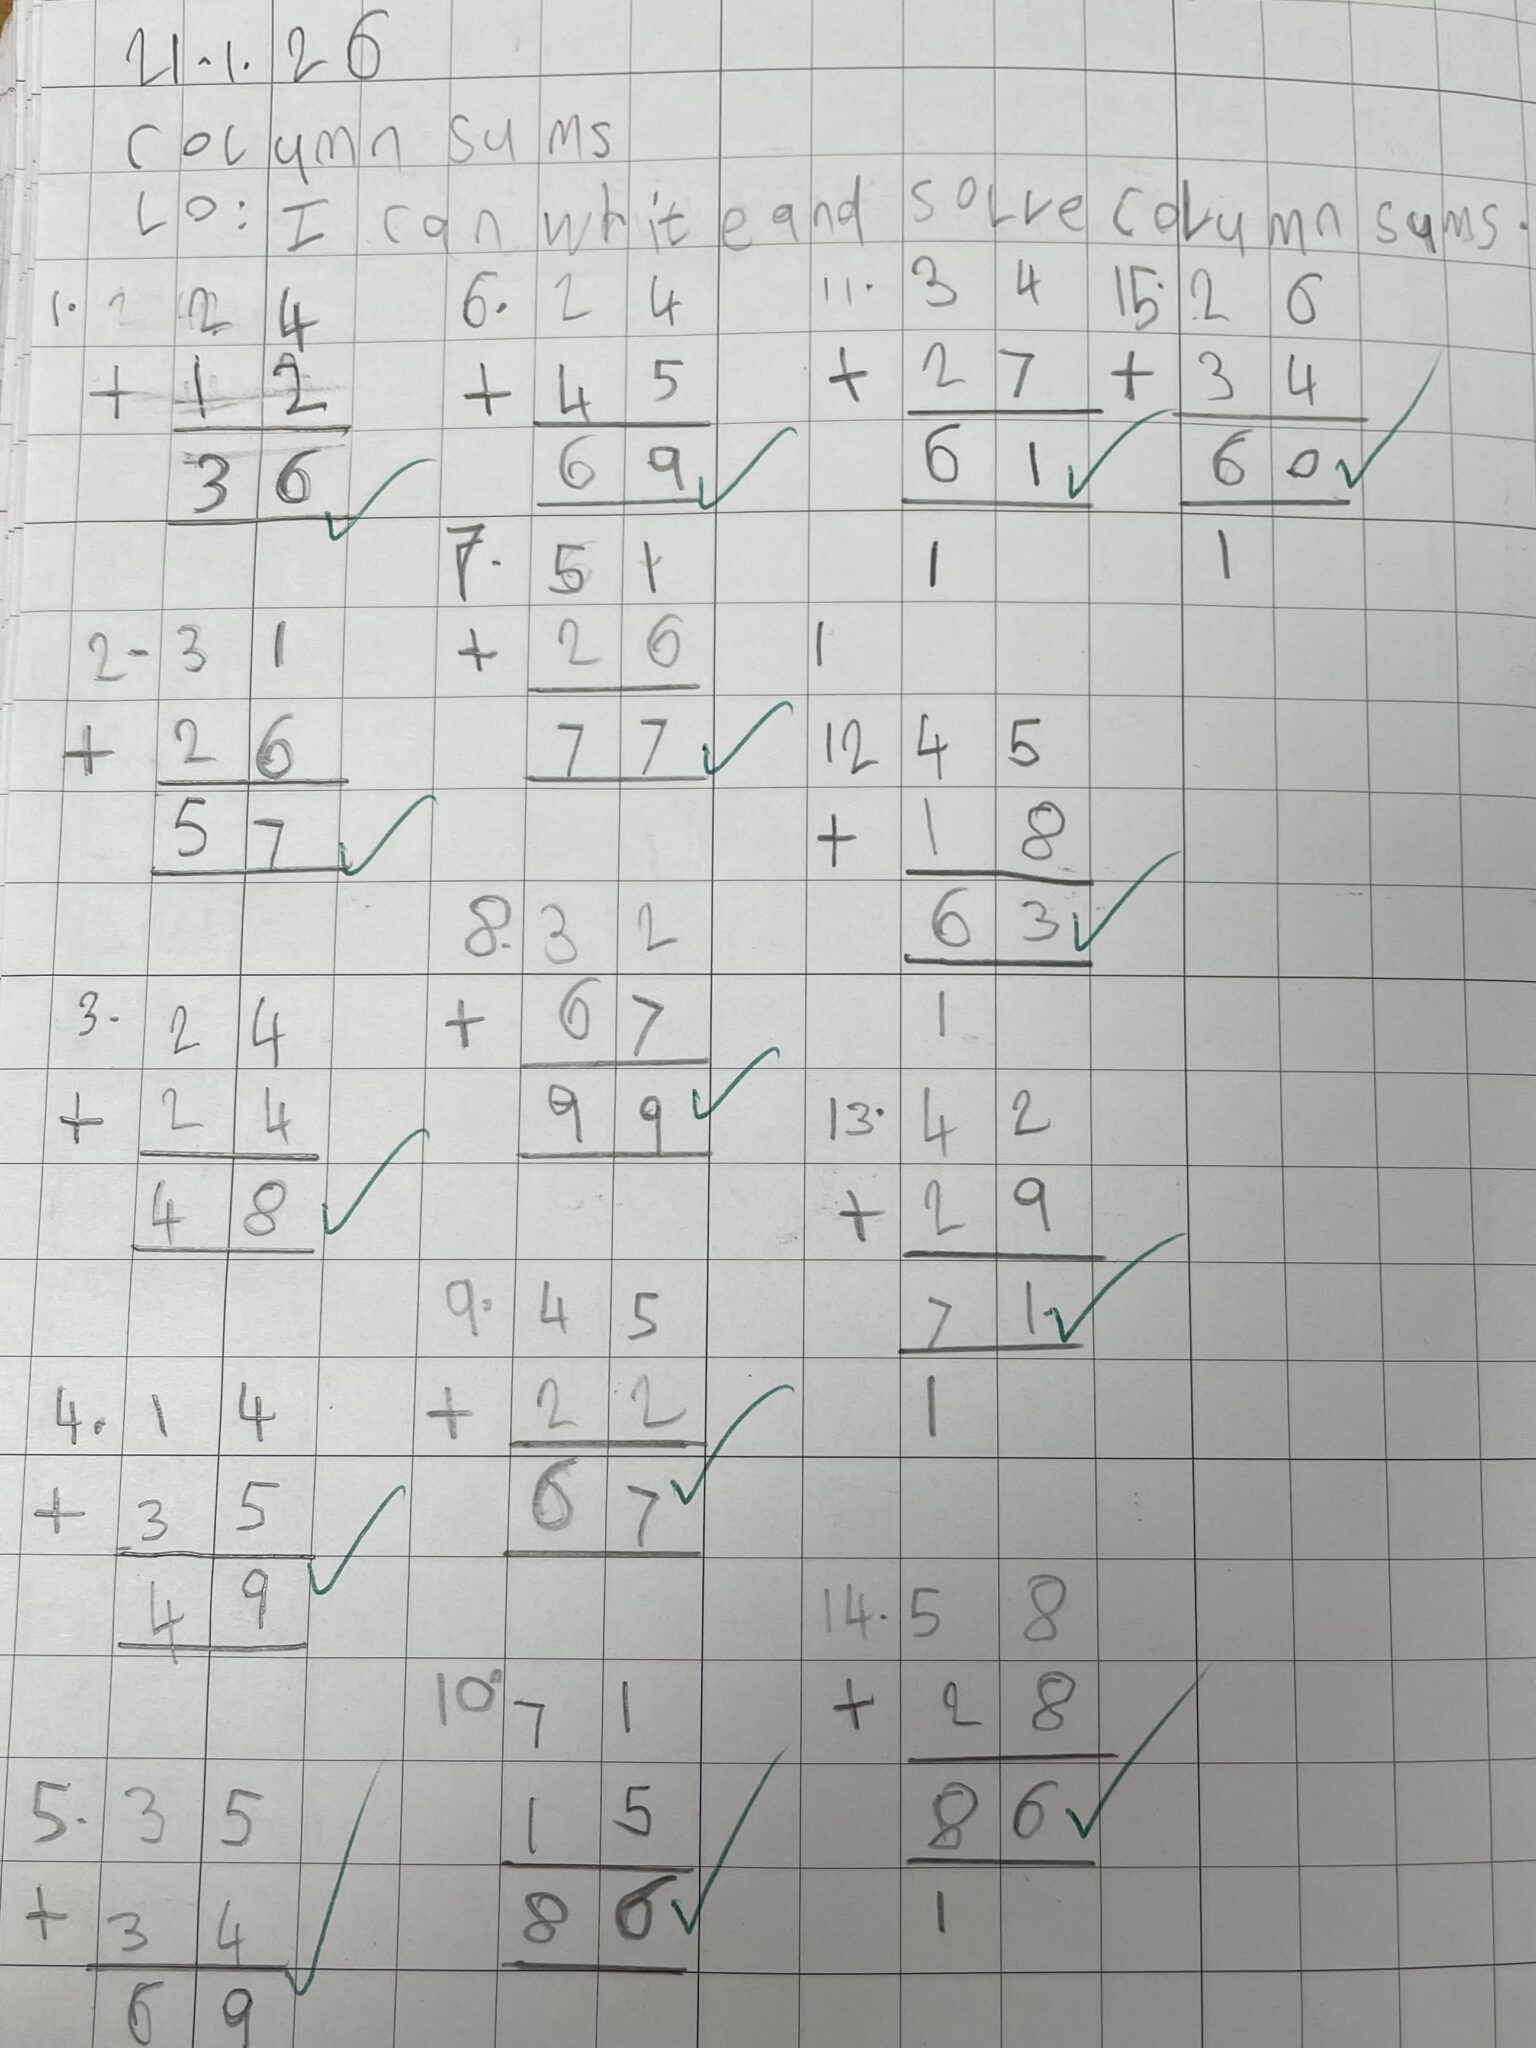 21.1.26
column sums
LO: I can write and solve column sums.
1. 24
+ 12
36
2. 31
+ 26
57
3. 24
+ 24
48
4. 14
+ 35
49
5. 35
+ 34
69
6. 24
+ 45
69
7. 51
+ 26
77
8. 32
+ 67
99
9. 45
+ 22
67
10. 71
15
86
11. 34
+ 27
61
1
1
12 45
+ 18
63
1
13. 42
+ 29
71
1
14. 58
+ 28
86
1
15. 26
+ 34
60
1